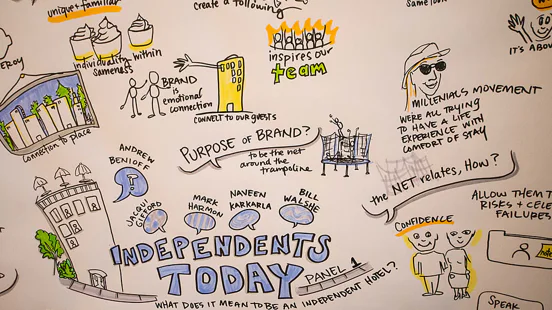 unique & familiar
create a following
individuality within
sameness
BRAND
is
emotional
connection
CONNECT TO OUR GUESTS
inspires our
team
MILLENIALS MOVEMENT
WE'RE ALL TRYING
TO HAVE A LIFE
EXPERIENCE WITH
COMFORT OF STAY
IT'S ABOU
connection to place
PURPOSE OF BRAND?
to be the net
around the
trampoline
the NET relates, HOW?
ALLOW THEM T
RISKS + CELE
FAILURES
ANDREW
BENIOFF
JACQU
GIFFORD
MARK
HARMON
NAVEEN
KAKARLA
BILL
WALSHE
INDEPENDENTS
TODAY
PANEL 1
WHAT DOES IT MEAN TO BE AN INDEPENDENT HOTEL?
CONFIDENCE
SPEAK